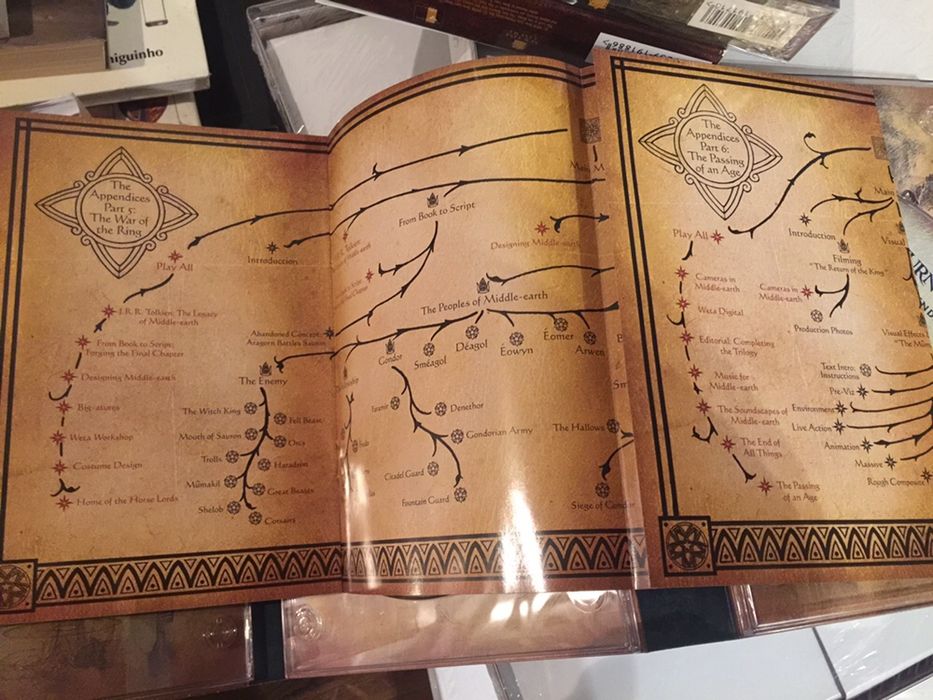 niguinho
The
Appendices
Part 5:
The War of
the Ring
Play All
Introduction
J.R.R. Tolkien: The Legacy
of Middle-earth
From Book to Script:
Forging the Final Chapter
Designing Middle-earth
Big-atures
Weta Workshop
Costume Design
Home of the Horse Lords
Abandoned Concept:
Aragorn Battles Sauron
The Enemy
The Witch King
Fell Beast
Mouth of Sauron
Orcs
Trolls
Haradrim
Mûmakil
Great Beasts
Shelob
Corsairs
From Book to Script
Designing Middle-earth
The Peoples of Middle-earth
Gondor
Sméagol
Déagol
Éowyn
Éomer
Arwen
Faramir
Denethor
Gondorian Army
Citadel Guard
Fountain Guard
The Hallows
Siege of Gondor
The
Appendices
Part 6:
The Passing
of an Age
Play All
Introduction
Main
Visual
Filming
"The Return of the King"
Cameras in
Middle-earth
Weta Digital
Editorial: Completing
the Trilogy
Music for
Middle-earth
The Soundscapes of
Middle-earth
The End of
All Things
The Passing
of an Age
Cameras in
Middle-earth
Production Photos
Visual Effects
Text Intro:
Instructions
Pre-Viz
Environment
Live Action
Animation
Massive
Rough Composite